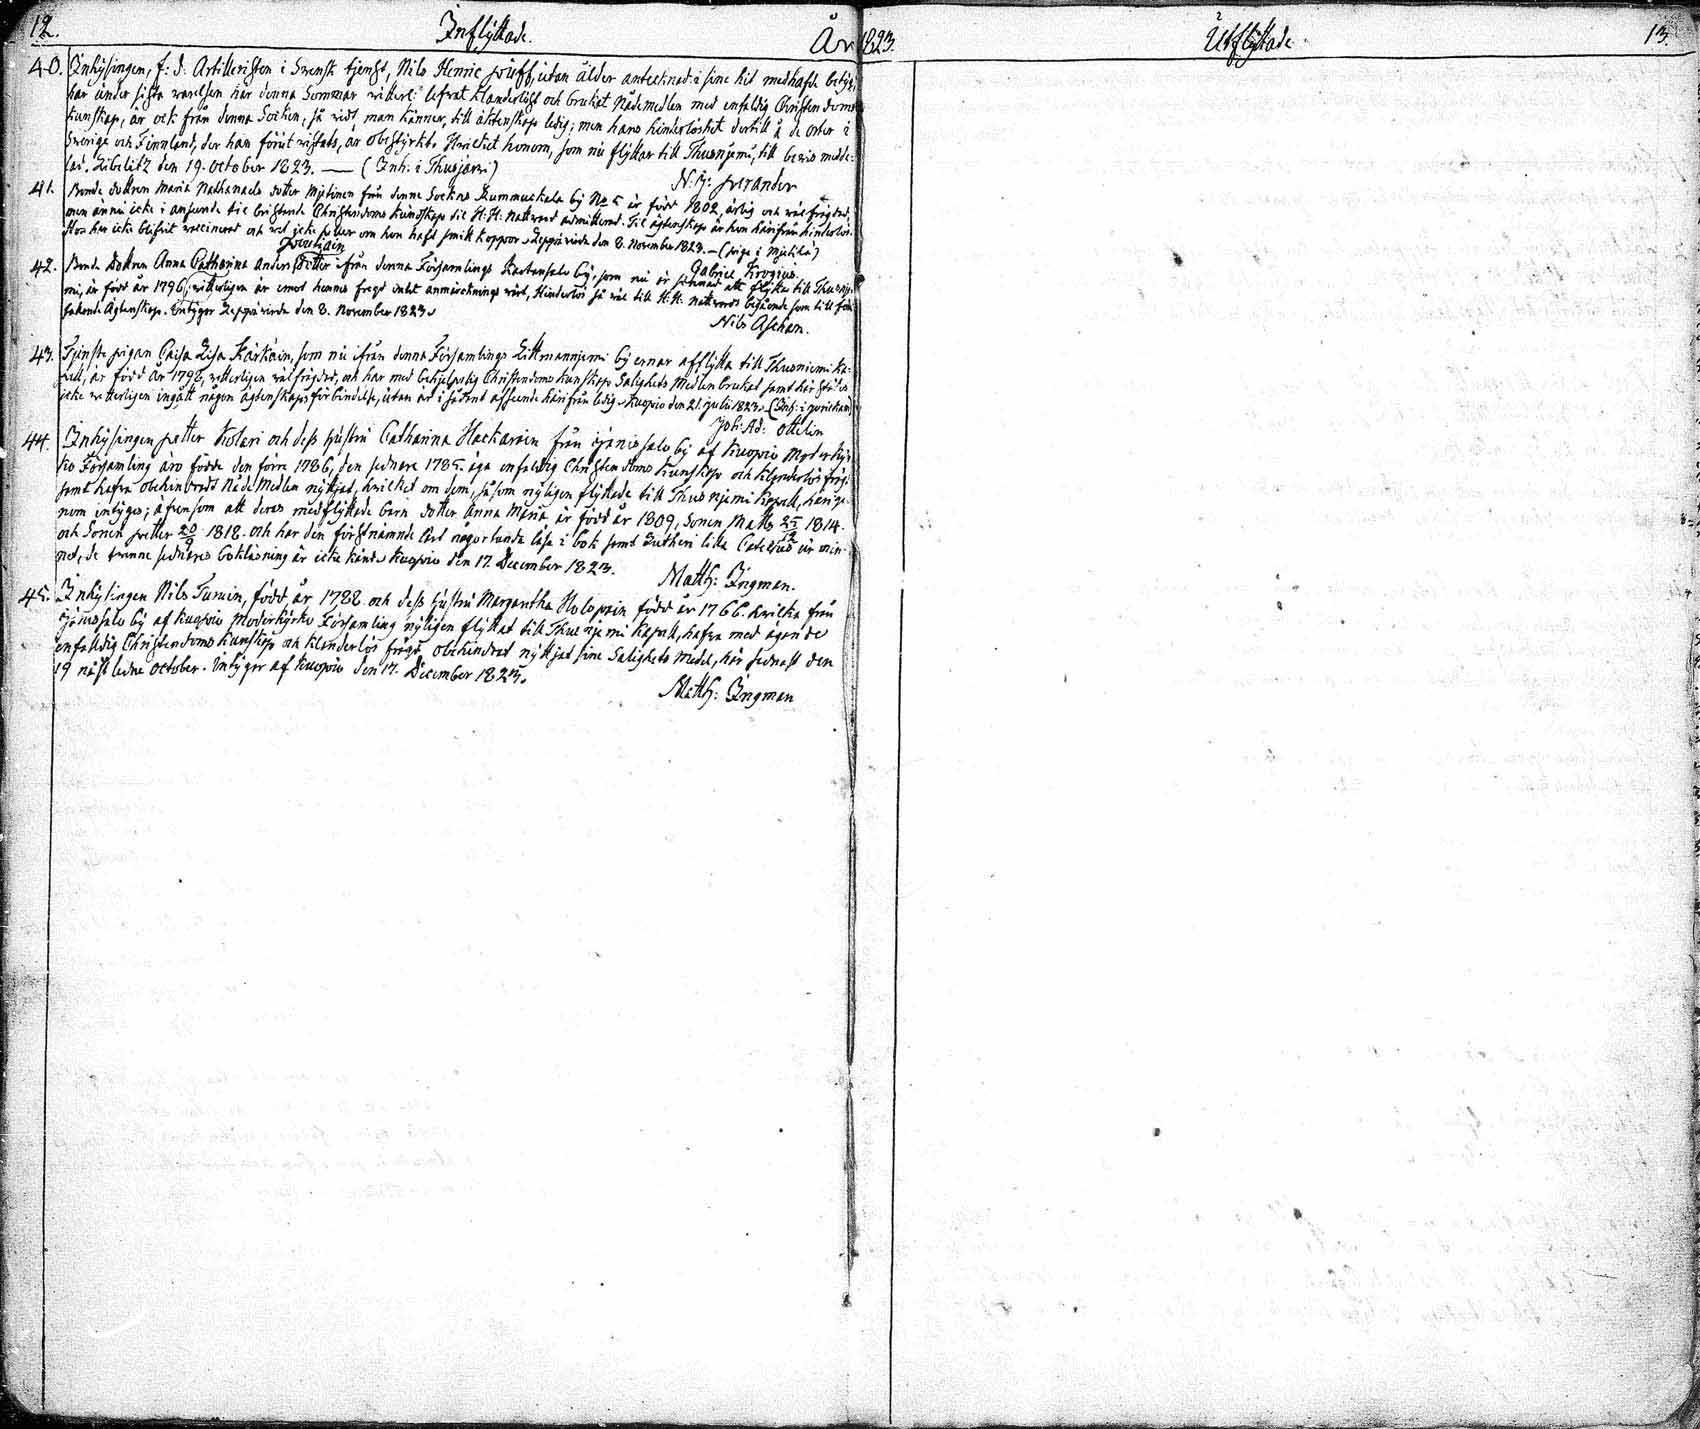 12. Inflyttade. År 1823. Utflyttade. 13.
40. Inhysingen, f: d. Artilleristen i Svensk tjenst, Nils Henric Puff, utan ålder antecknad i sine hit medhafde betyg,
har under sista varelsen här denna Sommar vitterl: lefvat klanderlöst och brukat Nådemedlen med enfaldig Christendoms
kunskap, är ock från denna Socken, så vidt man känner, till äktenskap ledig; men hans hinderlöshet dertill å de orter i
Sverige och Finnland, der han förut vistats, är obestyrkt. Hvilket honom, som nu flyttar till Thusnjemi, till bevis medde-
las. Libelitz den 19. October 1823. — (Inh: i Thusjärvi)
N: J: Perander
41. Bonde dottren Maria Nathanaels dotter Mjetinen från denne Sockns Kummuckala by No 5 är född 1802, ärlig och väl frägdad,
men ännu icke i anseende till bristande Christendoms kundskap til H: H: Nattvard admitterad. Til ägtenskap är hon härifrån hinderlös.
Hon har icke blifvit vaccinerad och vet icke heller om hon haft smitt koppor. Leppävirda den 8. November 1823. — (piga i Mjetilä)
Gabriel Krogius.
42. Bonde Dottren Anna Catharina Anders Dotter ifrån denna Församlings Kastensalo by, som nu är sinnad att flytta till Thusnje-
mi, är född år 1796, vitterligen är emot hennes fregd intet anmärcknings värt, Hinderlös så väl till H: H: Nattvards begående som till före-
fallande Ägtenskap. Intygar Leppävirda den 8. November 1823.
Nils Aschan.
43. Tjenste pigan Caisa Lisa Kärkäin, som nu ifrån denna Församlings Littmannjemi by ernar afflytta till Thusniemi Ka-
pell, är född år 1798, vitterligen välfrägdad, och har med behjelpelig Christendoms Kunskap Salighets Medlen brukat samt härstädes
icke vetterligen ingått någon ägtenskaps förbindelse, utan är i sådant afseende härifrån ledig. Kuopio den 21. Julii 1823.
Joh: Ad: Ottelin
44. Inhysingen Petter Kolari och dess hustru Catharina Hackarain från by af Kuopio Moderkyr-
ko Församling äro födde den förre 1786, den sednare 1785. äga enfaldig Christendoms Kunskap och klanderlös frägd
samt hafva obehindradt Nåde Medlen nyttjat, hvilket om dem, såsom nyligen flyttade till Thusnjemi Kapell, härige-
nom intygas; äfvensom att deras medflyttade barn dotter Anna Maria är född år 1809, Sonen Matts 25/12 1814.
och Sonen Petter 20/9 1818. och har den förstnämnde lärt någorlunda läsa i bok samt Lutheri lilla Cateches ur min-
net, de tvenne sednares bokläsning är icke känd. Kuopio den 17. December 1823.
Matth: Ingman.
45. Inhysingen Nils Turuin, född år 1788 och dess hustru Margaretha Holopain född år 1766. hvilka från
by af Kuopio Moderkyrko Församling nyligen flyttat till Thusnjemi Kapell, hafva med ägande
enfaldig Christendoms Kunskap och klanderlös frägd obehindrad nyttjat sine Salighets Medel, här sednast den
19 nästledne October. Intygar af Kuopio den 17. December 1823.
Matth: Ingman